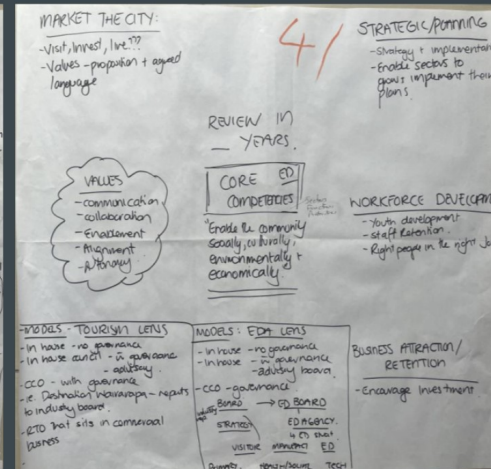 MARKET THE CITY:
- Visit, Invest, live???
- Values - proposition + agreed
language
4/
STRATEGIC/PLANNING
- Strategy + implementat
- Enable sectors to
grow + implement their
plans.
REVIEW IN
_ YEARS.
CORE ED
COMPETENCIES
"Enable the community
socially, culturally,
environmentally +
economically.
VALUES
- communication
- collaboration
- Enablement
- Alignment
- Autonomy
WORKFORCE DEVELOPM
- Youth development
- Staff Retention.
- Right people in the right Jo
- MODELS - TOURISM LENS
- In house - no governance
- In house council - w governance
- advisory
- CCO - with governance
- i.e. Destination Wairarapa - reports
to industry board.
- RTO that sits in commercial
business
MODELS: EDA LENS
- In house - no governance
- In house - w governance
- advisory board.
- CCO - governance
BOARD → ED BOARD
STRATEGY
ED AGENCY.
VISITOR MANUFACT ED
TECH
BUSINESS ATTRACTION/
RETENTION
- Encourage Investment